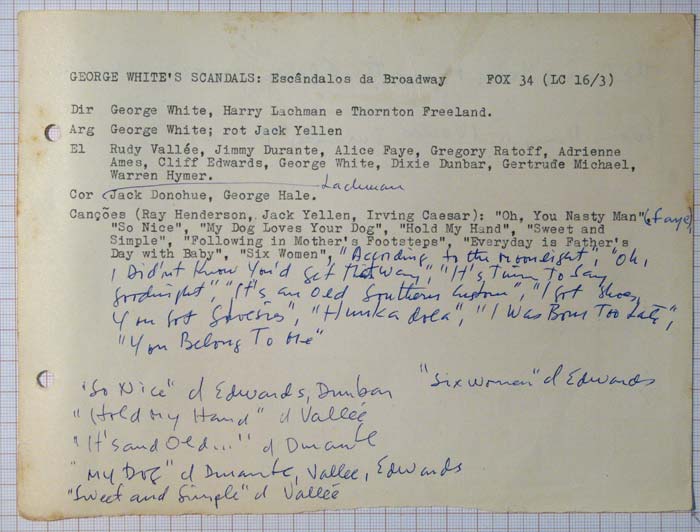 GEORGE WHITE'S SCANDALS: Escândalos da Broadway FOX 34 (LC 16/3)
Dir George White, Harry Lachman e Thornton Freeland.
Arg George White; rot Jack Yellen
El Rudy Vallée, Jimmy Durante, Alice Faye, Gregory Ratoff, Adrienne
Ames, Cliff Edwards, George White, Dixie Dunbar, Gertrude Michael,
Warren Hymer.
Lachman
Cor Jack Donohue, George Hale.
Canções (Ray Henderson, Jack Yellen, Irving Caesar): "Oh, You Nasty Man" (Faye),
"So Nice", "My Dog Loves Your Dog", "Hold My Hand", "Sweet and
Simple", "Following in Mother's Footsteps", "Everyday is Father's
Day with Baby", "Six Women", "According to the moonlight", "Oh,
I Didn't Know You'd Get That Way", "It's Time to Say
Goodnight", "It's an Old Southern Custom", "I Got Shoes,
You Got Shoesies", "Hunkadola", "I Was Born Too Late",
"You Belong To Me"
"So Nice" d Edwards, Dunbar "Six Women" d Edwards
"Hold My Hand" d Vallée
"It's and Old..." d Durante
"My Dog" d Durante, Vallee, Edwards
"Sweet and Simple" d Vallée